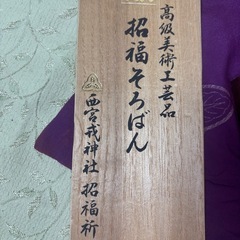 高級美術工芸品
招福そろばん
西宮戎神社 招福祈